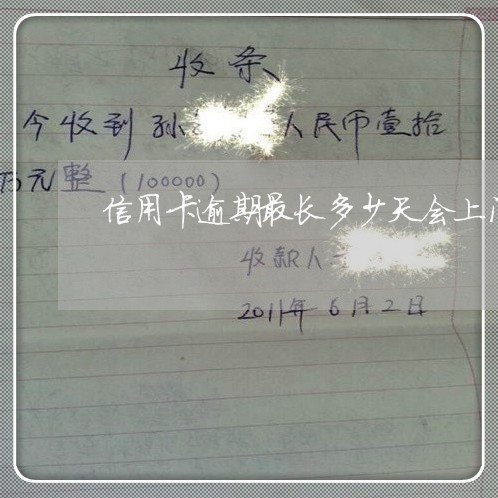 收条
今收到孙 人民币壹拾
万元整（100000）
信用卡逾期最长多少天会上
收款人
2011年6月2日